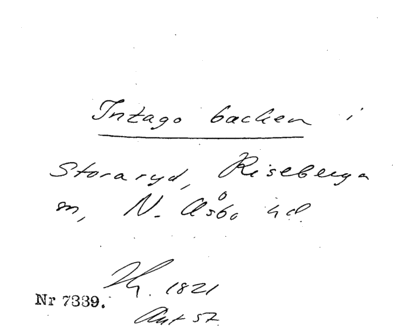 Intago backen i
Storaryd, Riseberga
sn, N. Åsbo hd.
1821
Nr 7339.
Ant 57.